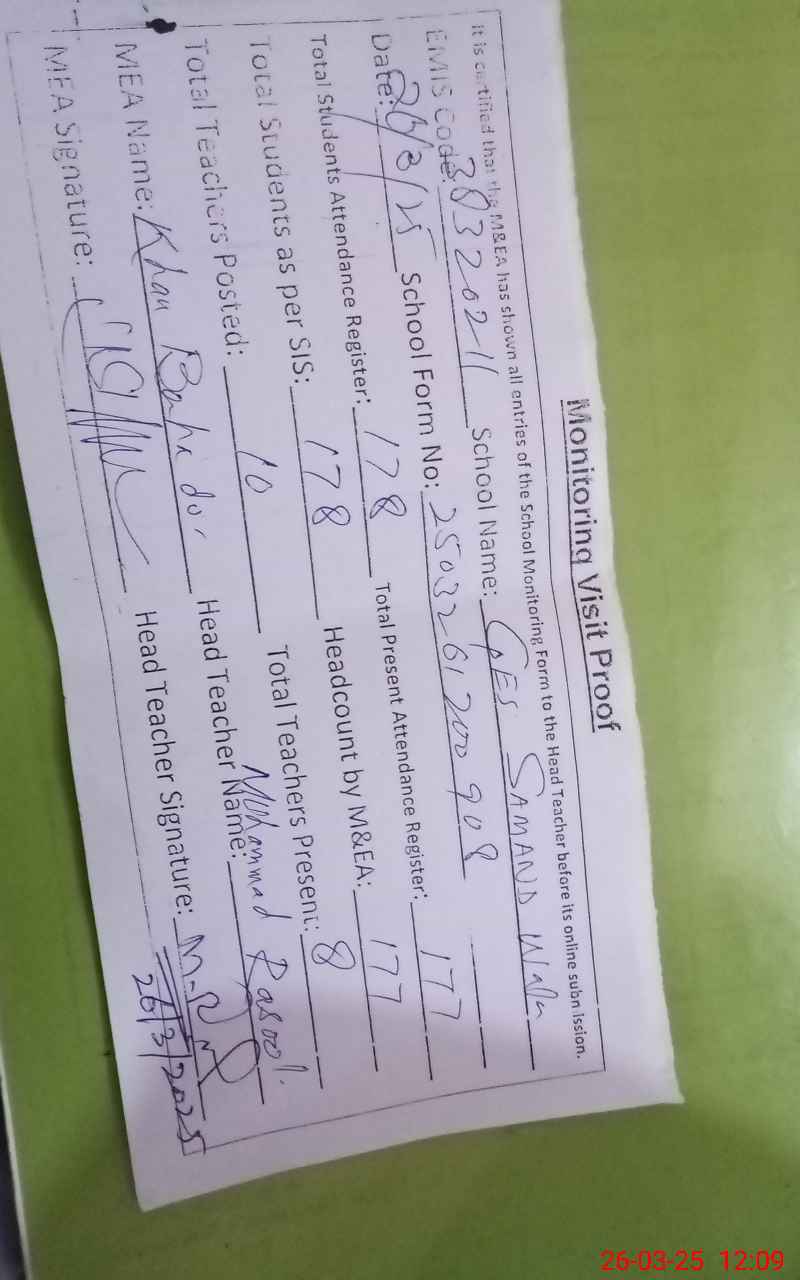 Monitoring Visit Proof
It is certified that the M&EA has shown all entries of the School Monitoring Form to the Head Teacher before its online submission.
EMIS Code: 38320211 School Name: GES SAMAND Wala
Date: 26/3/25 School Form No: 2503261200908
Total Students Attendance Register: 178 Total Present Attendance Register: 177
Total Students as per SIS: 178 Headcount by M&EA: 177
Total Teachers Posted: 10 Total Teachers Present: 8
MEA Name: Khan Bahador Head Teacher Name: Muhammad Rasool
MEA Signature: Head Teacher Signature:
26/3/2025
26-03-25 12:09